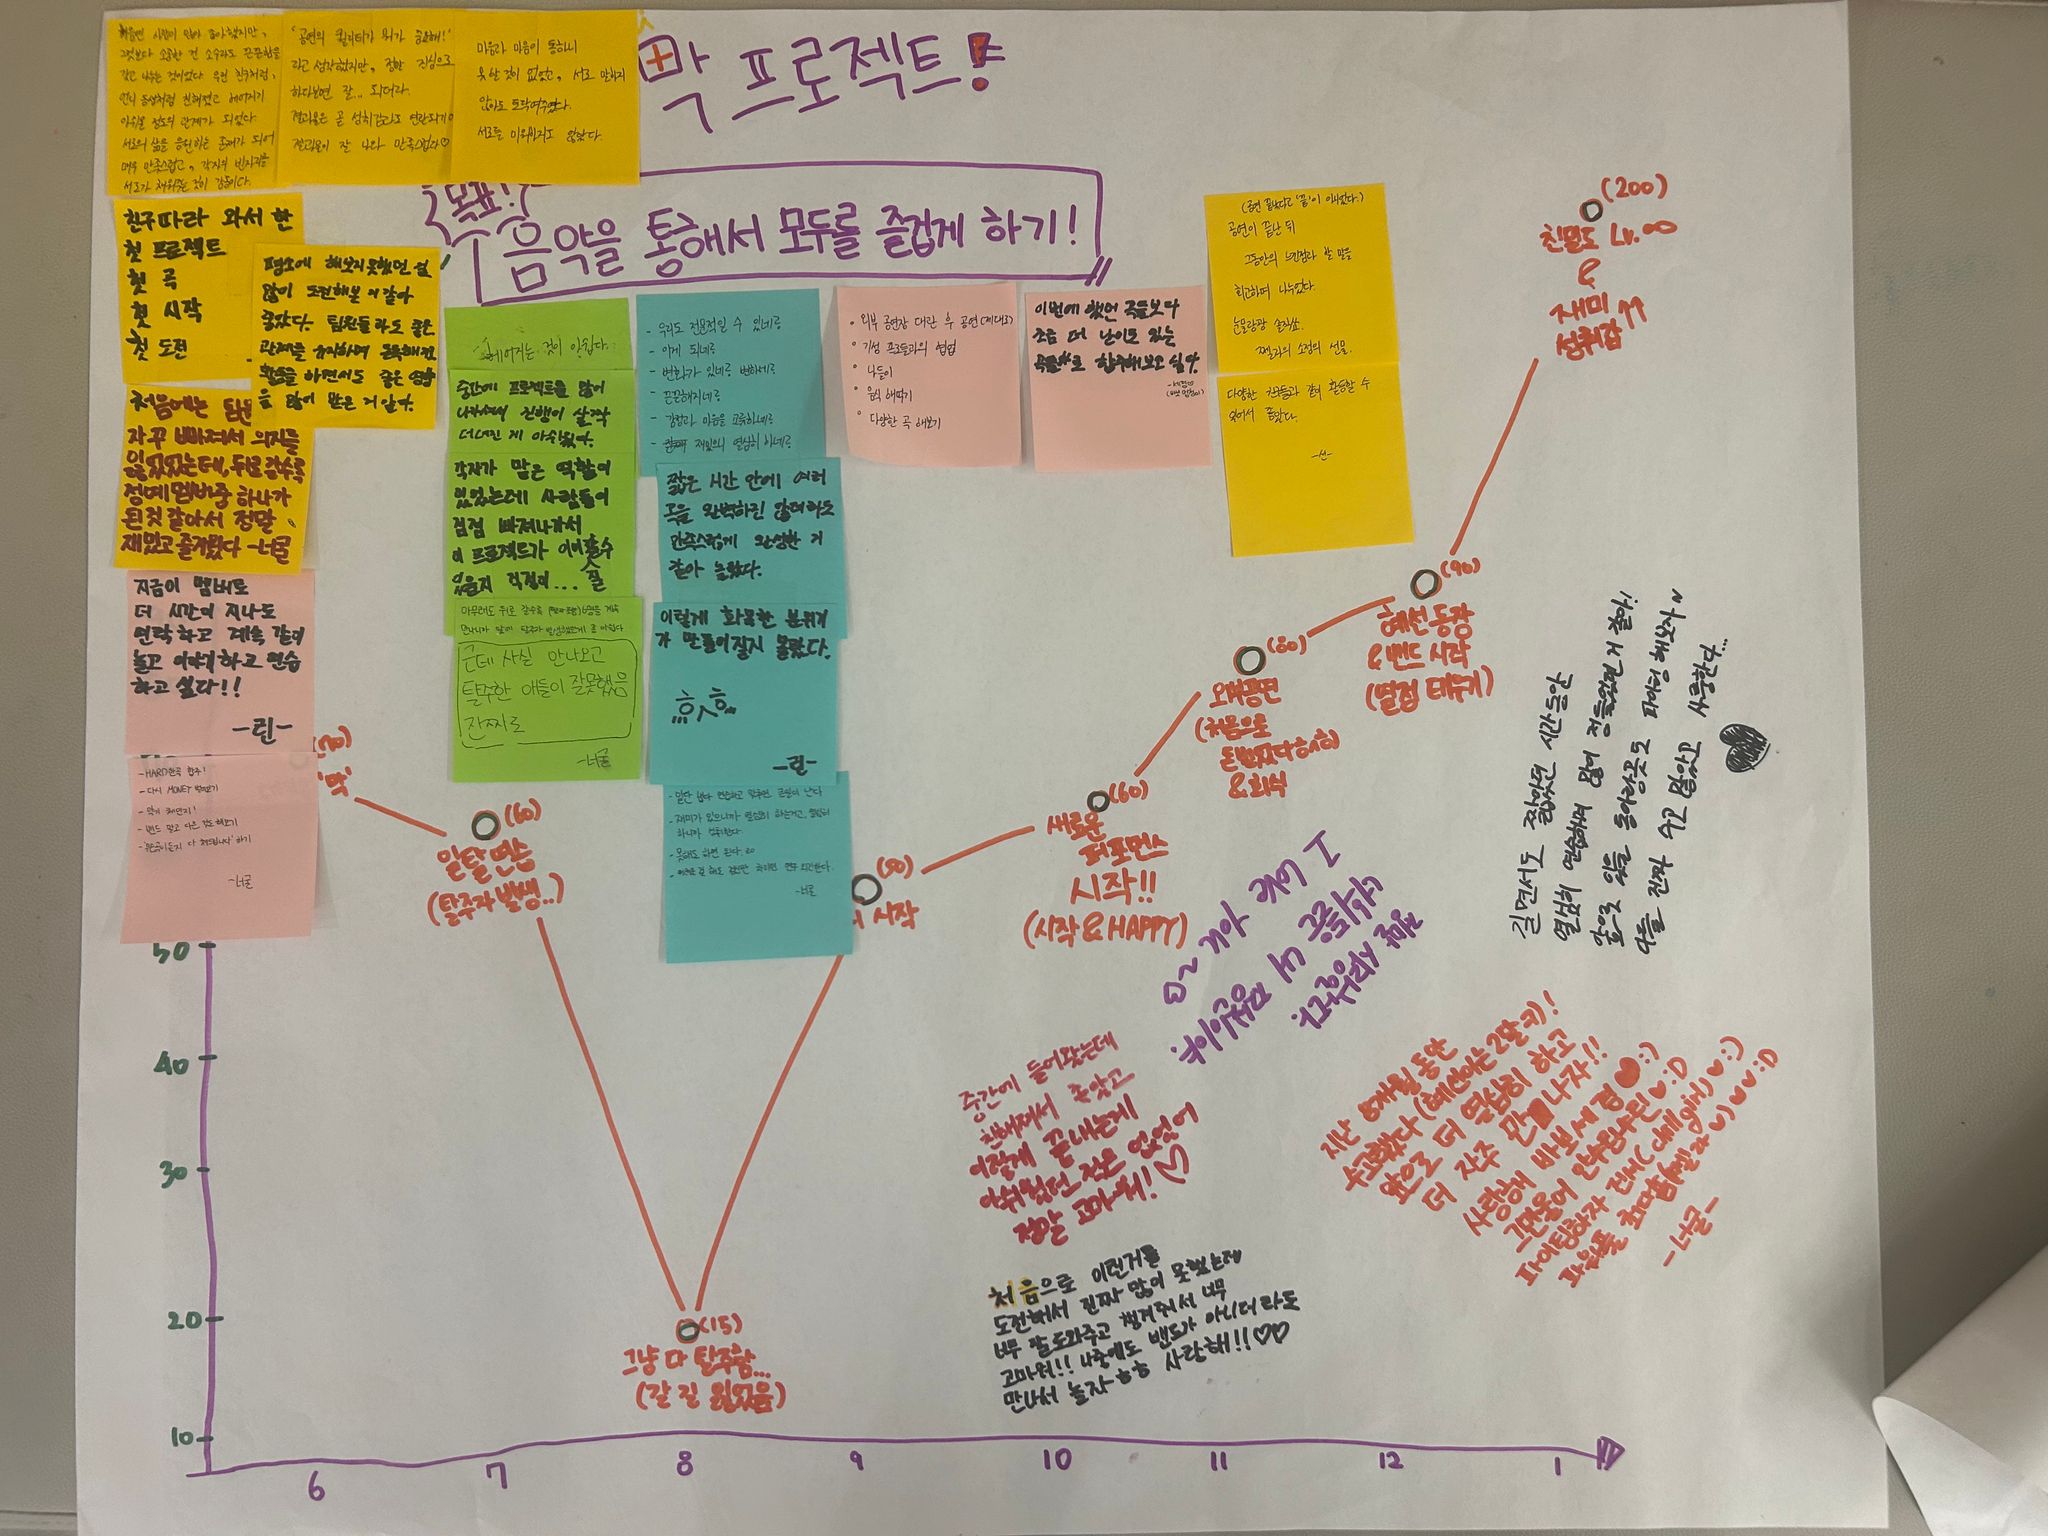 막 프로젝트!
목표!
음악을 통해서 모두를 즐겁게 하기!
처음엔 사람이 많아 좋아했지만,
그것보다 소중한 건 소수라도 끈끈함을
갖고 나누는 것이었다 우린 친구처럼,
언니 동생처럼 친해졌고 헤어지기
아쉬울 정도의 관계가 되었다.
서로의 삶을 응원하는 존재가 되어
매우 만족스럽고, 각자의 빈자리를
서로가 채워주는 것이 감동이다.
'공연의 퀄리티가 뭐가 중요해!'
라고 생각했지만, 정한 진심으로
하다보면 잘.. 되더라.
결과물은 곧 성취감과도 연관되기에
결과물이 잘 나와 만족스럽다♡
마음과 마음이 통하니
못할 것이 없었고, 서로 말하지
않아도 토닥여주었다.
서로를 미워하지도 않았다.
친구따라 와서 한
첫 프로젝트
첫 곡
첫 시작
첫 도전
평소에 해보지 못했던 걸
많이 도전해본 거 같아
좋았다. 팀원들과도 좋은
관계를 유지하며 돈독해져
활동을 하면서도 좋은 영향
을 많이 받은 거 같다.
처음에는 팀원
자꾸 빠져서 의지를
잃었었는데, 뒤로 갈수록
정예멤버중 하나가
된것 같아서 정말
재밌고 즐거웠다 -너굴
지금이 멤버로
더 시간이 지나도
연락하고 계속 같이
놀고 이야기하고 연습
하고 싶다!!
-린-
- HARD한곡 합주!
- 다시 MONEY 벌러가기
- 밴드 말고 다른 것도 해보기
-너굴
헤어지는 것이 아쉽다.
중간에 프로젝트를 많이
나가서 진행이 살짝
더뎌진 게 아쉬웠다.
각자가 맡은 역할이
있었는데 사람들이
점점 빠져나가서
이 프로젝트가 이어질수
있을지 걱정이...
아무래도 뒤로 갈수록
근데 사실 안나오고
탈주한 애들이 잘못했음
진짜로
-너굴
- 우리도 전문적일 수 있네류
- 이게 되네류
- 변화가 있네류 변하네류
- 끈끈해지네류
- 감정과 마음을 교류하네류
- 재밌으니 열심히 하네류
짧은 시간 안에 여러
곡을 완벽하진 않더라도
만족스럽게 완성한 거
같아 놀랐다.
이렇게 화목한 분위기
가 만들어질지 몰랐다.
흐ㅅ흐
-린-
- 일단 냅다 연습하고 맞추면 곡이 난다
- 재미가 있으니까 열심히 하는거고, 열심히
하니까 성취한다
- 못해도 하면 된다
-너굴
• 외부 공연장 대관 후 공연(제대로)
• 기성 프로들과의 협업
• 나들이
• 음식 해먹기
• 다양한 곡 해보기
이번에 했던 곡들보다
조금 더 난이도 있는
곡들로 합주해보고 싶다.
(공연 끝났다고 '끝'이 아니었다.)
공연이 끝난 뒤
그동안의 느낀점과 할 말을
회고하며 나누었다.
눈물광광 슬퍼요.
쩰라의 소정의 선물.
다양한 친구들과 같이 활동할 수
있어서 좋았다.
-선-
(200)
친밀도 Lv.∞
&
재미
성취감↑↑
(90)
혜선 등장
& 밴드 시작
(열정 태우기)
(80)
외부공연
(처음으로
돈벌었다 히히)
& 회식
(60)
새로운
퍼포먼스
시작!!
(시작 & HAPPY)
(50)
시작
(70)
(60)
일탈 연습
(탈주자 발생..)
(15)
그냥 다 탈주함...
(갈 길 잃었음)
50
40
30
20
10
6
7
8
9
10
11
12
1
길면서도 짧았던 시간동안
열심히 연습하며 많이 정들었던 거 같아!
앞으로 있을 동아리곡도 파이팅 해보자~
다들 진짜 수고 많았고 사릉한다...
중간에 들어왔는데
친해져서 좋았고
이렇게 끝내는게
아쉬웠던 적은 없었어
정말 고마워!♡
처음으로 이런거를
도전해서 진짜 많이 못했는데
너무 잘 도와주고 챙겨줘서 너무
고마워!! 나중에도 밴드가 아니더라도
만나서 놀자ㅎㅎ 사랑해!!♡♡
지난 8개월 동안
수고했다 (혜선이는 2달 ㅋ)!
앞으로 더 열심히 하고
더 자주 만나자!!
-너굴-